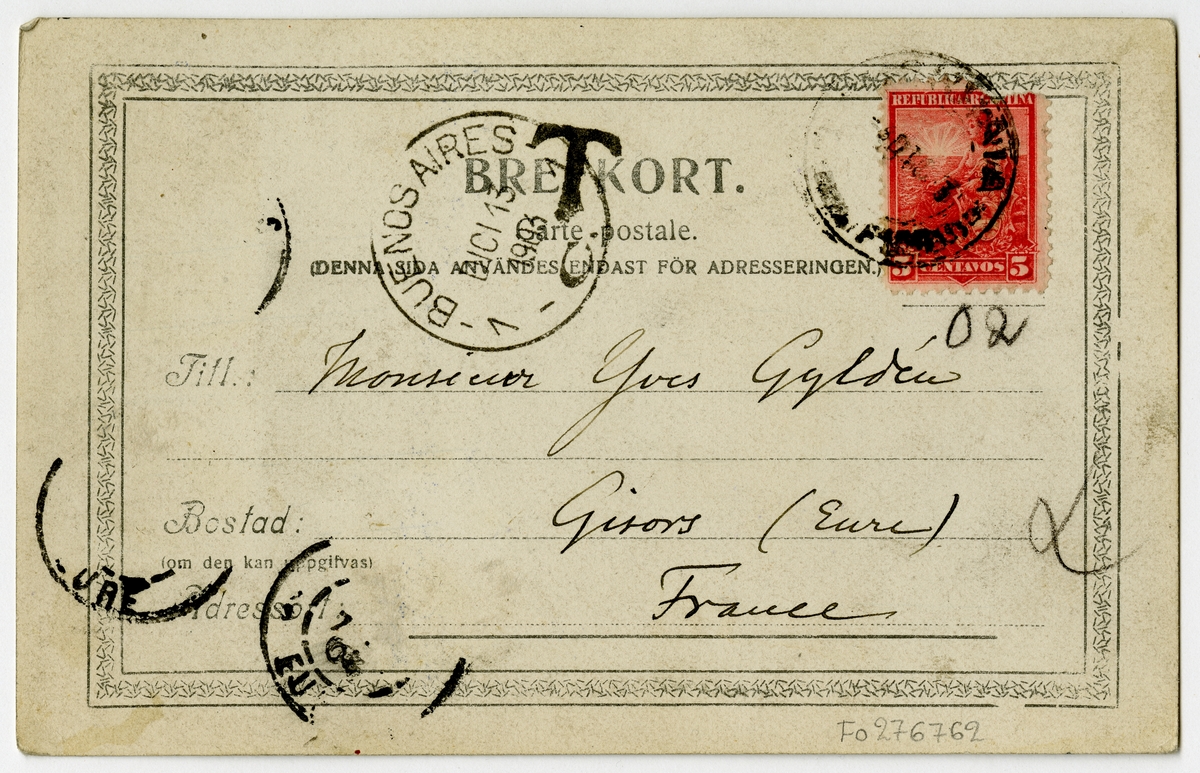 REPUBLICA ARGENTINA
BUENOS AIRES
DICI 13
1903
T
BREFKORT.
Carte postale.
(DENNA SIDA ANVÄNDES ENDAST FÖR ADRESSERINGEN.)
5 CENTAVOS 5
02
Till.: Monsieur Yves Gyldén
Bostad: Gisors (Eure)
(om den kan uppgifvas)
URE
Adresspost: France
Fo276762